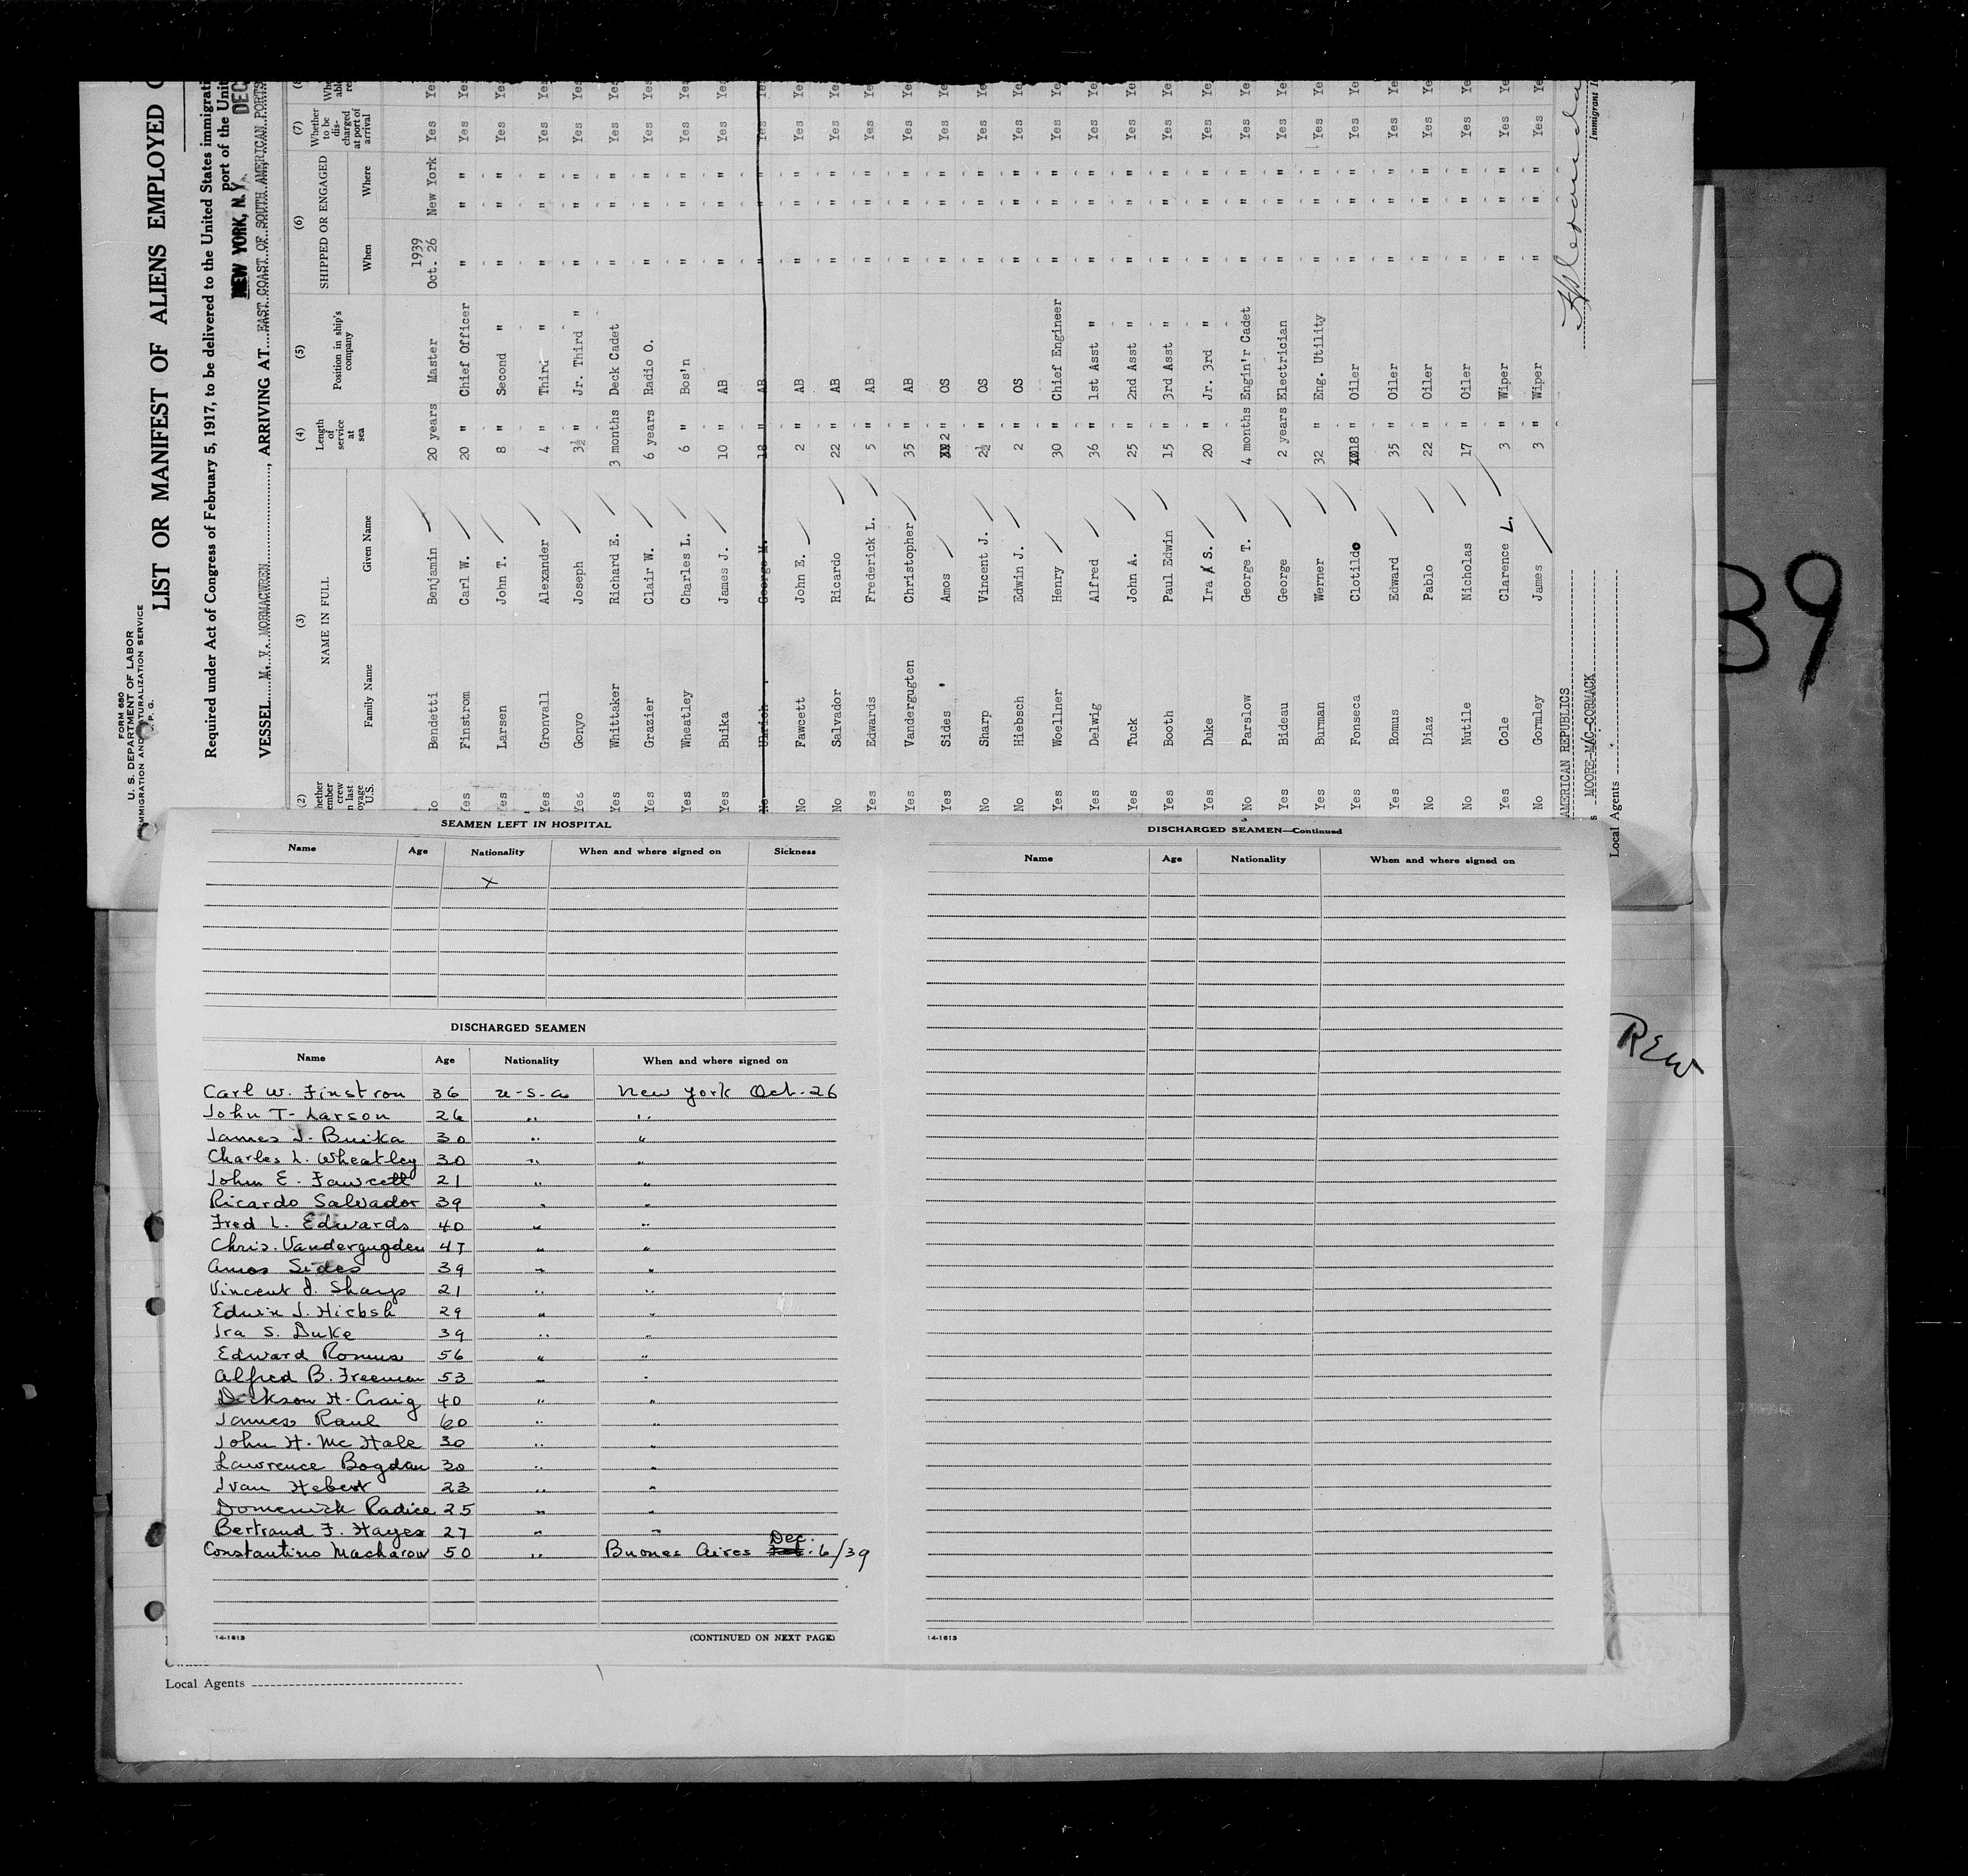 FORM 680
U. S. DEPARTMENT OF LABOR
IMMIGRATION AND NATURALIZATION SERVICE
LIST OR MANIFEST OF ALIENS EMPLOYED
Required under Act of Congress of February 5, 1917, to be delivered to the United States immigrati
port of the Unit
NEW YORK, N.Y. DEC
VESSEL M. V. MORMACWREN, ARRIVING AT EAST COAST OF SOUTH AMERICAN PORTS
(2) (3) (4) (5) (6) (7)
NAME IN FULL Length of service at sea Position in ship's company SHIPPED OR ENGAGED Whether to be discharged at port of arrival
Family Name Given Name When Where
No Bendetti Benjamin 20 years Master 1939 Oct. 26 New York Yes Ye
Yes Finstrom Carl W. 20 " Chief Officer " " " Yes Ye
Yes Larsen John T. 8 " Second " " " " Yes Ye
Yes Gronvall Alexander 4 " Third " " " " Yes Ye
Yes Gonyo Joseph 3½ " Jr. Third " " " " Yes Ye
Yes Whittaker Richard E. 3 months Deck Cadet " " " Yes Ye
Yes Grazier Clair W. 6 years Radio O. " " " Yes Ye
Yes Wheatley Charles L. 6 " Bos'n " " " Yes Ye
Yes Buika James J. 10 " AB " " " Yes Ye
No Ulrich George M. 18 " AB " " " Yes Ye
No Fawcett John E. 2 " AB " " " Yes Ye
No Salvador Ricardo 22 " AB " " " Yes Ye
Yes Edwards Frederick L. 5 " AB " " " Yes Ye
Yes Vandergugten Christopher 35 " AB " " " Yes Ye
Yes Sides Amos 2 " OS " " " Yes Ye
No Sharp Vincent J. 2½ " OS " " " Yes Ye
No Hiebsch Edwin J. 2 " OS " " " Yes Ye
Yes Woellner Henry 30 " Chief Engineer " " " Yes Ye
Yes Delwig Alfred 36 " 1st Asst " " " " Yes Ye
Yes Tuck John A. 25 " 2nd Asst " " " " Yes Ye
Yes Booth Paul Edwin 15 " 3rd Asst " " " " Yes Ye
Yes Duke Ira S. 20 " Jr. 3rd " " " " Yes Ye
No Parslow George T. 4 months Engin'r Cadet " " " Yes Ye
Yes Bideau George 2 years Electrician " " " Yes Ye
Yes Burman Werner 32 " Eng. Utility " " " Yes Ye
Yes Fonseca Clotildo 18 " Oiler " " " Yes Ye
Yes Romus Edward 35 " Oiler " " " Yes Ye
No Diaz Pablo 22 " Oiler " " " Yes Ye
No Nutile Nicholas 17 " Oiler " " " Yes Ye
Yes Cole Clarence L. 3 " Wiper " " " Yes Ye
No Gormley James 3 " Wiper " " " Yes Ye
AMERICAN REPUBLICS
MOORE-MAC-CORMACK
Local Agents
Immigrant I
39
REW
SEAMEN LEFT IN HOSPITAL
Name Age Nationality When and where signed on Sickness
X
DISCHARGED SEAMEN
Name Age Nationality When and where signed on
Carl W. Finstron 36 U-S-a New York Oct. 26
John T- Larson 26 " "
James J. Buika 30 " "
Charles L. Wheatley 30 " "
John E. Fawcett 21 " "
Ricardo Salvador 39 " "
Fred L. Edwards 40 " "
Chris. Vandergugden 47 " "
Amos Sides 39 " "
Vincent J. Sharp 21 " "
Edwin J. Hiebsh 29 " "
Ira S. Duke 39 " "
Edward Romus 56 " "
Alfred B. Freeman 53 " "
Dickson H. Craig 40 " "
James Raul 60 " "
John H. McHale 30 " "
Lawrence Bogdan 30 " "
Ivan Hebert 23 " "
Domenick Radice 25 " "
Bertrand F. Hayes 27 " "
Constantino Macharow 50 " Buones Aires Dec. 6/39
14-1613 (CONTINUED ON NEXT PAGE)
DISCHARGED SEAMEN—Continued
Name Age Nationality When and where signed on
14-1613
Local Agents